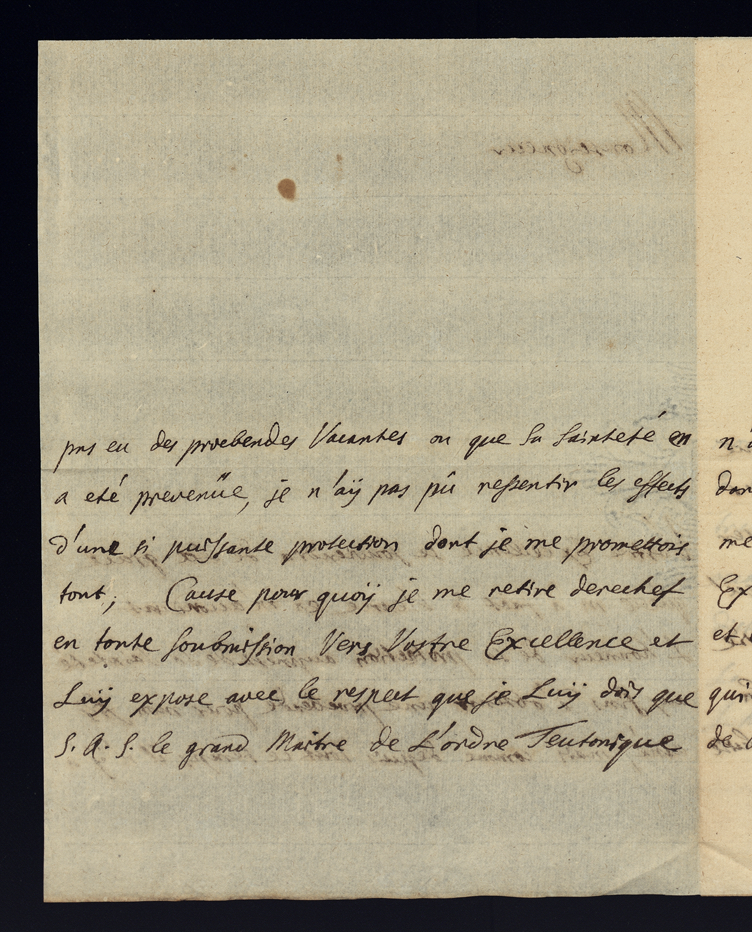 pas eu des proebendes Vacantes ou que sa sainteté en
a eté prevenüe, je n'aÿ pas pû ressentir les effects
d'une si puissante protection dont je me promettois
tout; Cause pour quoÿ je me retire derechef
en toute soubmission Vers Vostre Excellence et
Luÿ expose avec le respect que je Luÿ dois que
S. A. S. le grand Maitre de L'ordre Teutonique